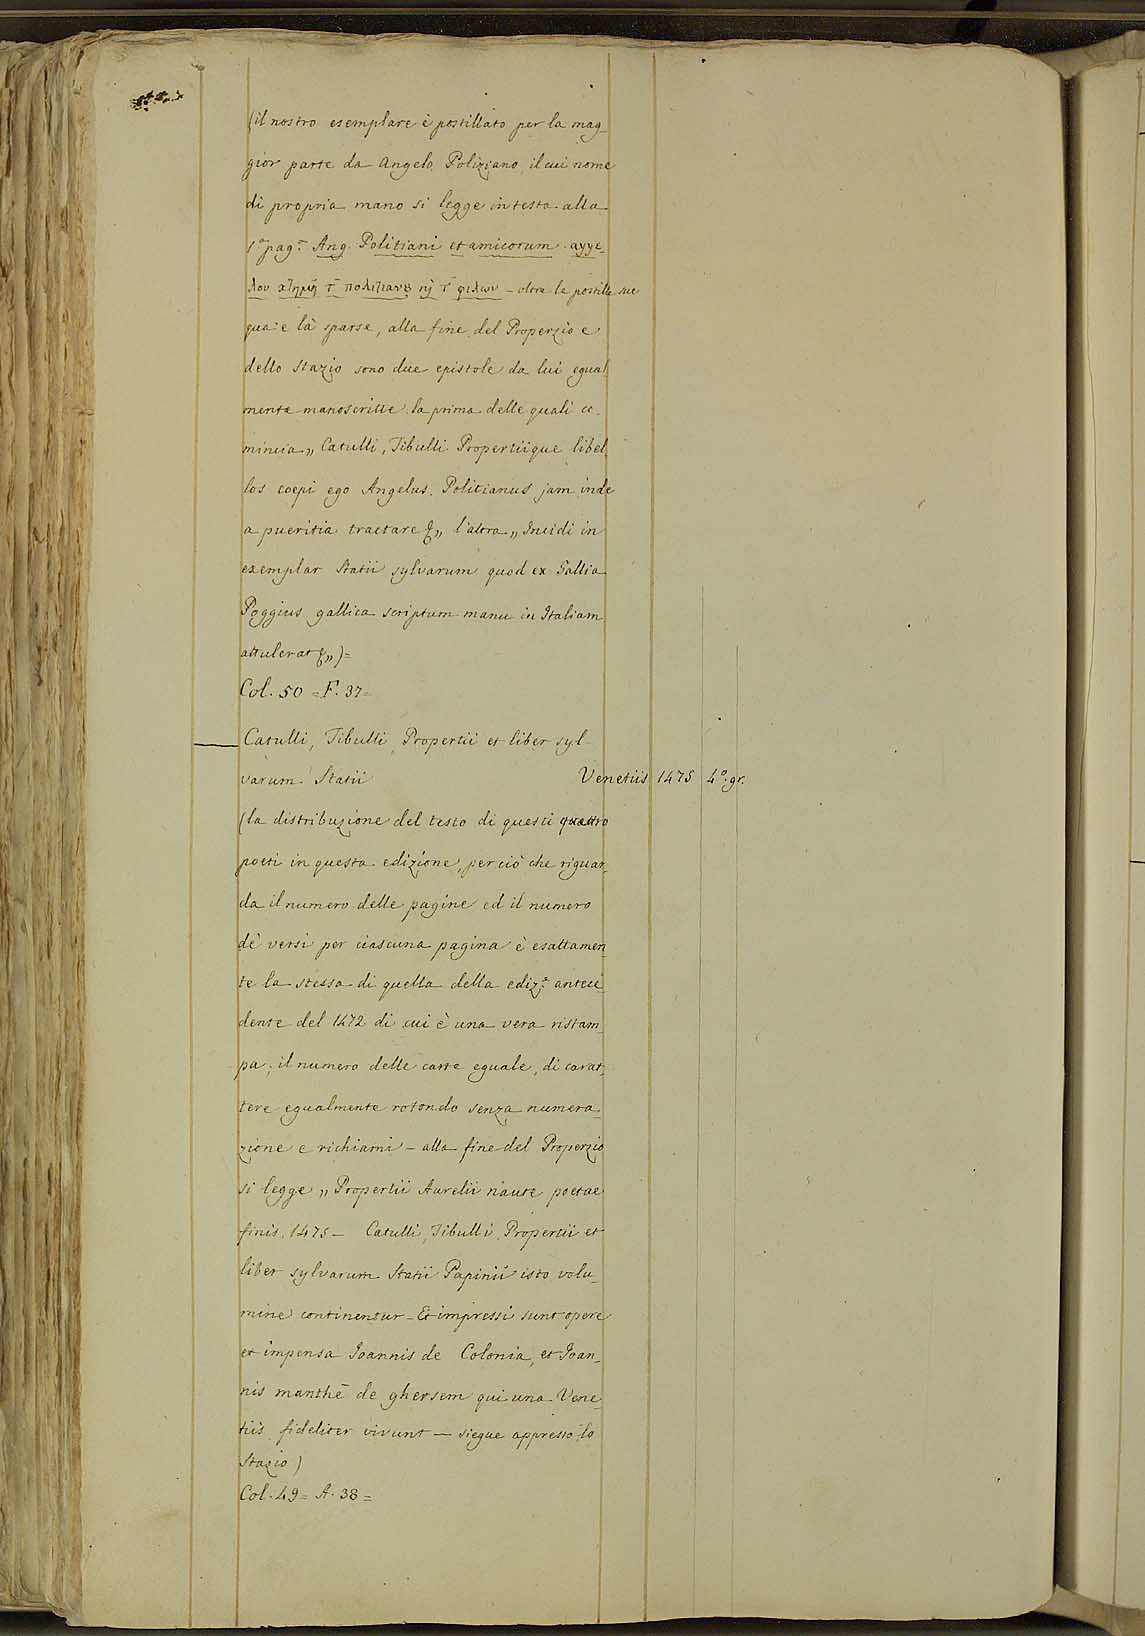 (il nostro esemplare è postillato per la mag-
gior parte da Angelo Poliziano, il cui nome
di propria mano si legge in testa alla
1.ª pag.ª Ang. Politiani et amicorum. αγγε-
λου πολιτιανου φιλων – oltre le postille sue
qua e là sparse, alla fine del Properzio e
dello Stazio sono due epistole da lui egual-
mente manoscritte. la prima delle quali co-
mincia „ Catulli, Tibulli Propertiique libel-
los coepi ego Angelus Politianus jam inde
a pueritia tractare & „ l'altra „ Incidi in
exemplar Statii sylvarum quod ex Gallia
Poggius gallica scriptum manu in Italiam
attulerat & „)=
Col. 50 = F. 37 =
Catulli, Tibulli, Propertii et liber syl-
varum Statii Venetiis 1475 4.º gr.
(la distribuzione del testo di questi quattro
poeti in questa edizione, per ciò che riguar-
da il numero delle pagine ed il numero
de' versi per ciascuna pagina è esattamen-
te la stessa di quella della ediz.e antece-
dente del 1472 di cui è una vera ristam-
pa; il numero delle carte eguale, di carat-
tere egualmente rotondo senza numera-
zione e richiami – alla fine del Properzio
si legge „ Propertii Aurelii naute poetae
finis. 1475 – Catulli, Tibulli, Propertii et
liber sylvarum Statii Papinii isto volu-
mine continentur – Et impressi sunt opere
et impensa Joannis de Colonia, et Joan-
nis manthē de ghersem qui una Vene-
tiis fideliter vivunt — siegue appresso lo
Stazio)
Col. 49 = A. 38 =